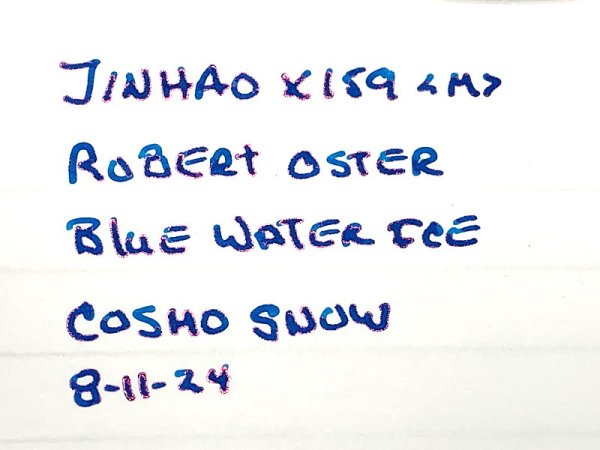 JINHAO X159 <M>
ROBERT OSTER
BluE WATER ICE
COSMO SNOW
8-11-24